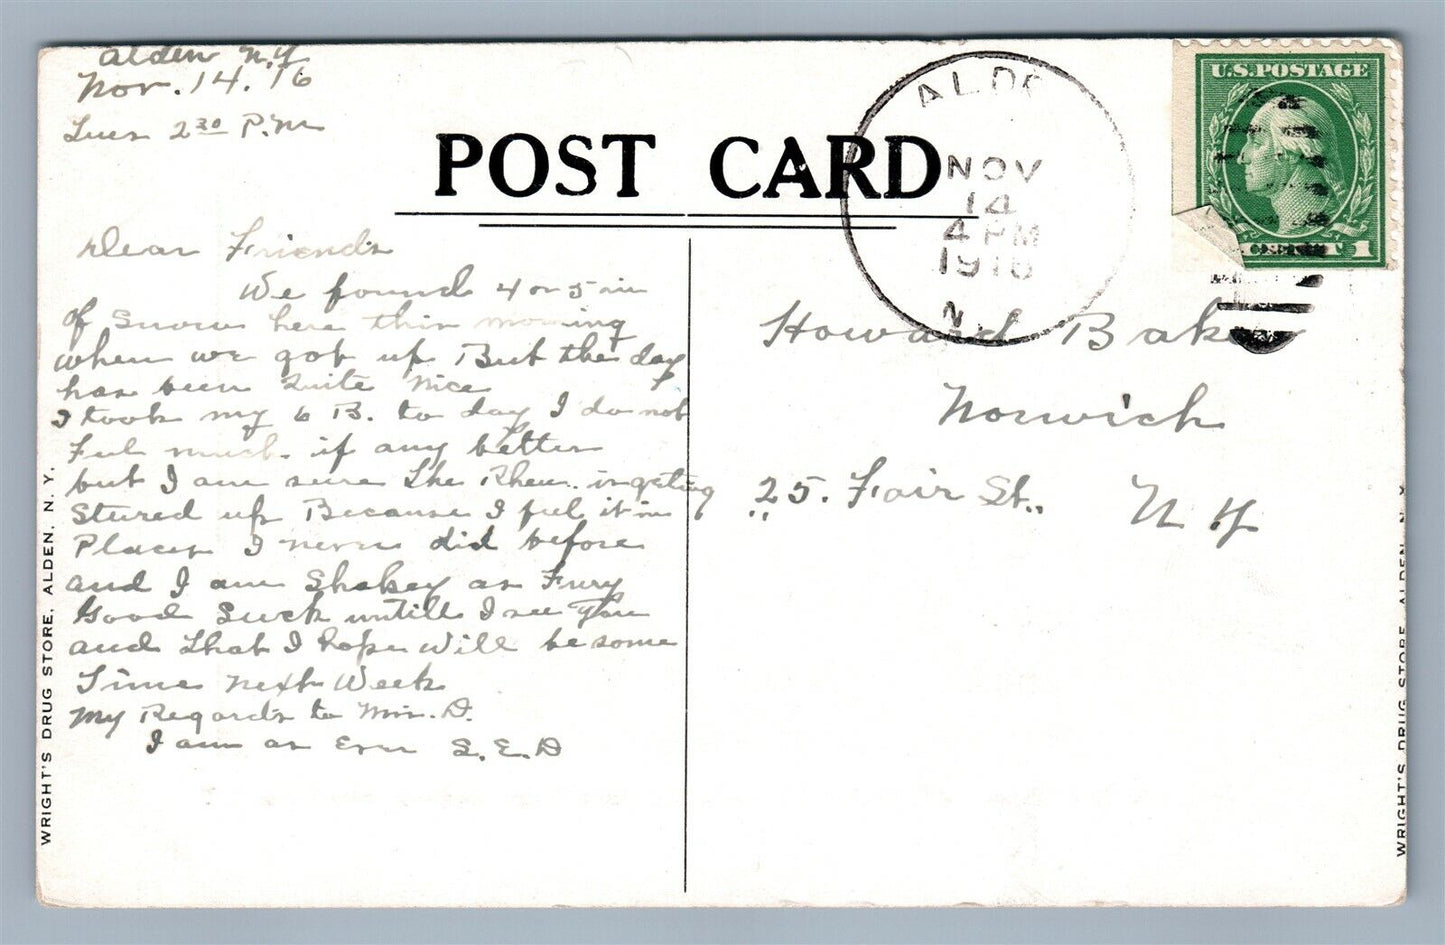 Alden N.Y
Nov. 14. 16
Tues 2 30 P.M
POST CARD
ALDE
NOV
14
4 PM
1916
N.
U.S. POSTAGE
1
Dear Friends
We found 4 or 5 in
of Snow here this morning
when we got up But the day
has been Quite Nice
I took my 6 B. to day I do not
Feel much if any better
but I am sure The Rheu. is geting
Stured up Because I feel it in
Places I never did before
and I am Shakey as Fury
Good Luck untill I see You
and that I hope will be some
Time next Week
My Regards to Mrs. D.
I am as Ever S. E. D
Howard Bake
Norwich
25. Fair St. N Y
WRIGHT'S DRUG STORE, ALDEN, N. Y.
WRIGHT'S DRUG STORE, ALDEN, N. Y.